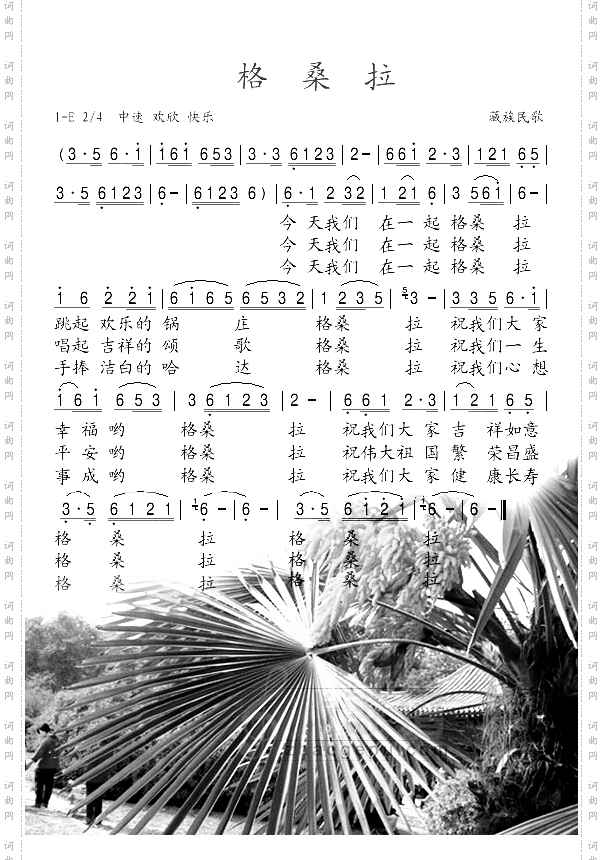 格 桑 拉
1=E 2/4 中速 欢欣 快乐 藏族民歌
(3·5 6·i | i6i 653 | 3·3 6123 | 2- | 66i 2·3 | 121 65 |
3·5 6123 | 6- | 6123 6) | 6·1 2 32 | 1 21 6 | 3 561 | 6- |
今 天我们 在一 起 格桑 拉
今 天我们 在一 起 格桑 拉
今 天我们 在一 起 格桑 拉
i 6 2 2i | 6 i 6 5 6 5 3 2 | 1 2 3 5 | 53 - | 3 3 5 6·i |
跳起 欢乐的 锅 庄 格桑 拉 祝我们大 家
唱起 吉祥的 颂 歌 格桑 拉 祝我们一 生
手捧 洁白的 哈 达 格桑 拉 祝我们心 想
i 6 i 6 5 3 | 3 6 1 2 3 | 2 - | 6 6 i 2·3 | 1 2 1 6 5 |
幸 福哟 格桑 拉 祝我们大 家 吉 祥如意
平 安哟 格桑 拉 祝伟大祖 国 繁 荣昌盛
事 成哟 格桑 拉 祝我们大 家 健 康长寿
3·5 6 1 2 1 | 16 - | 6 - | 3·5 6 i 2 i | 16 - | 6 - ‖
格 桑 拉 格 桑 拉
格 桑 拉 格 桑 拉
格 桑 拉 格 桑 拉
词曲网